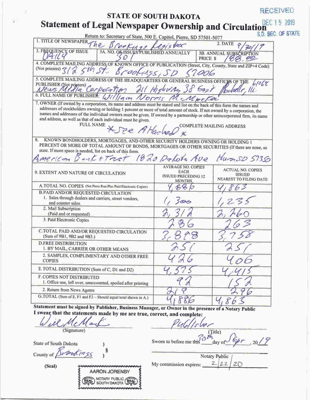 RECEIVED
DEC 15 2015
S.D. SEC. OF STATE
STATE OF SOUTH DAKOTA
Statement of Legal Newspaper Ownership and Circulation
Return to: Secretary of State, 500 E Capitol, Pierre, SD 57501-5077
1. TITLE OF NEWSPAPER The Brookings Register
2. DATE
3. FREQUENCY OF ISSUE
DAILY
3A. NO. OF ISSUES PUBLISHED ANNUALLY
301
3B. ANNUAL SUBSCRIPTION
PRICE $
4. COMPLETE MAILING ADDRESS OF KNOWN OFFICE OF PUBLICATION (Street, City, County, State and ZIP+4 Code)
(Not printers) 312 5th St. Brookings, SD 57006
5. COMPLETE MAILING ADDRESS OF THE HEADQUARTERS OR GENERAL BUSINESS OFFICES OF THE
News Media Corporation 211 Highway 38 East
6. FULL NAME OF PUBLISHER: William
7. OWNER (If owned by a corporation, its name and address must be stated and also on the back of this form the names and
addresses of stockholders owning or holding 1 percent or more of total amount of stock. If not owned by a corporation, the
names and addresses of the individual owners must be given. If owned by a partnership or other unincorporated firm, its name
and address, as well as that of each individual must be given.
FULL NAME
COMPLETE MAILING ADDRESS
* See Attached *
8. KNOWN BONDHOLDERS, MORTGAGES, AND OTHER SECURITY HOLDERS OWNING OR HOLDING 1
PERCENT OR MORE OF TOTAL AMOUNT OF BONDS, MORTGAGES OR OTHER SECURITIES (If there are none, so
state. If more space is needed, list on back of this form.
American Bank & Trust 1820 Dakota Ave Huron, SD 57350
9. EXTENT AND NATURE OF CIRCULATION
AVERAGE NO. COPIES
EACH
ISSUED PRECEDING 12
MONTHS
ACTUAL NO. COPIES
ISSUED
NEAREST TO FILING DATE
A. TOTAL NO. COPIES 4,886 4,863
B. PAID AND/OR REQUESTED CIRCULATION
1. Sales through dealers and carriers, street vendors,
and counter sales 1,300 1,235
2. Mail Subscription
(Paid and or requested) 2,312 2,260
3. Paid Electronic Copies 286 263
C. TOTAL PAID AND/OR REQUESTED CIRCULATION
(Sum of 9B1, 9B2 and 9B3.) 3,898 3,758
D. FREE DISTRIBUTION
1. BY MAIL, CARRIER OR OTHER MEANS 251 251
2. SAMPLES, COMPLIMENTARY AND OTHER FREE
COPIES 426 406
E. TOTAL DISTRIBUTION (Sum of C, D1 and D2) 4,575 4,415
F. COPIES NOT DISTRIBUTED
1. Office use, left over, unaccounted, spoiled after printing 92 152
2. Return from News Agents 219 296
G. TOTAL (Sum of E, F1 and F2 – Should equal total shown in A.) 4,886 4,863
Statement must be signed by Publisher, Business Manager, or Owner in the presence of a Notary Public
I swear that the statements made by me are true, correct, and complete:
Publisher
(Signature)
(Title)
State of South Dakota )
County of Brookings )
Sworn to before me this
(Seal)
Notary Public
My commission expires: 2/22/20
AARON JORENBY
NOTARY PUBLIC
SOUTH DAKOTA